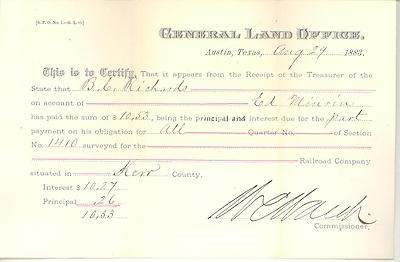 [S. F. O. No. 1.—G. L. O.]
GENERAL LAND OFFICE.
Austin, Texas, Aug 29 1883.
This is to Certify, That it appears from the Receipt of the Treasurer of the
State that B. C. Richards
on account of Ed
has paid the sum of $ 10.53, being the principal and interest due for the part
payment on his obligation for All Quarter No. of Section
No. 1410 surveyed for the
Railroad Company
situated in Kerr County.
Interest $ 10.27
Principal .26
10.53
W C Walsh
Commissioner.